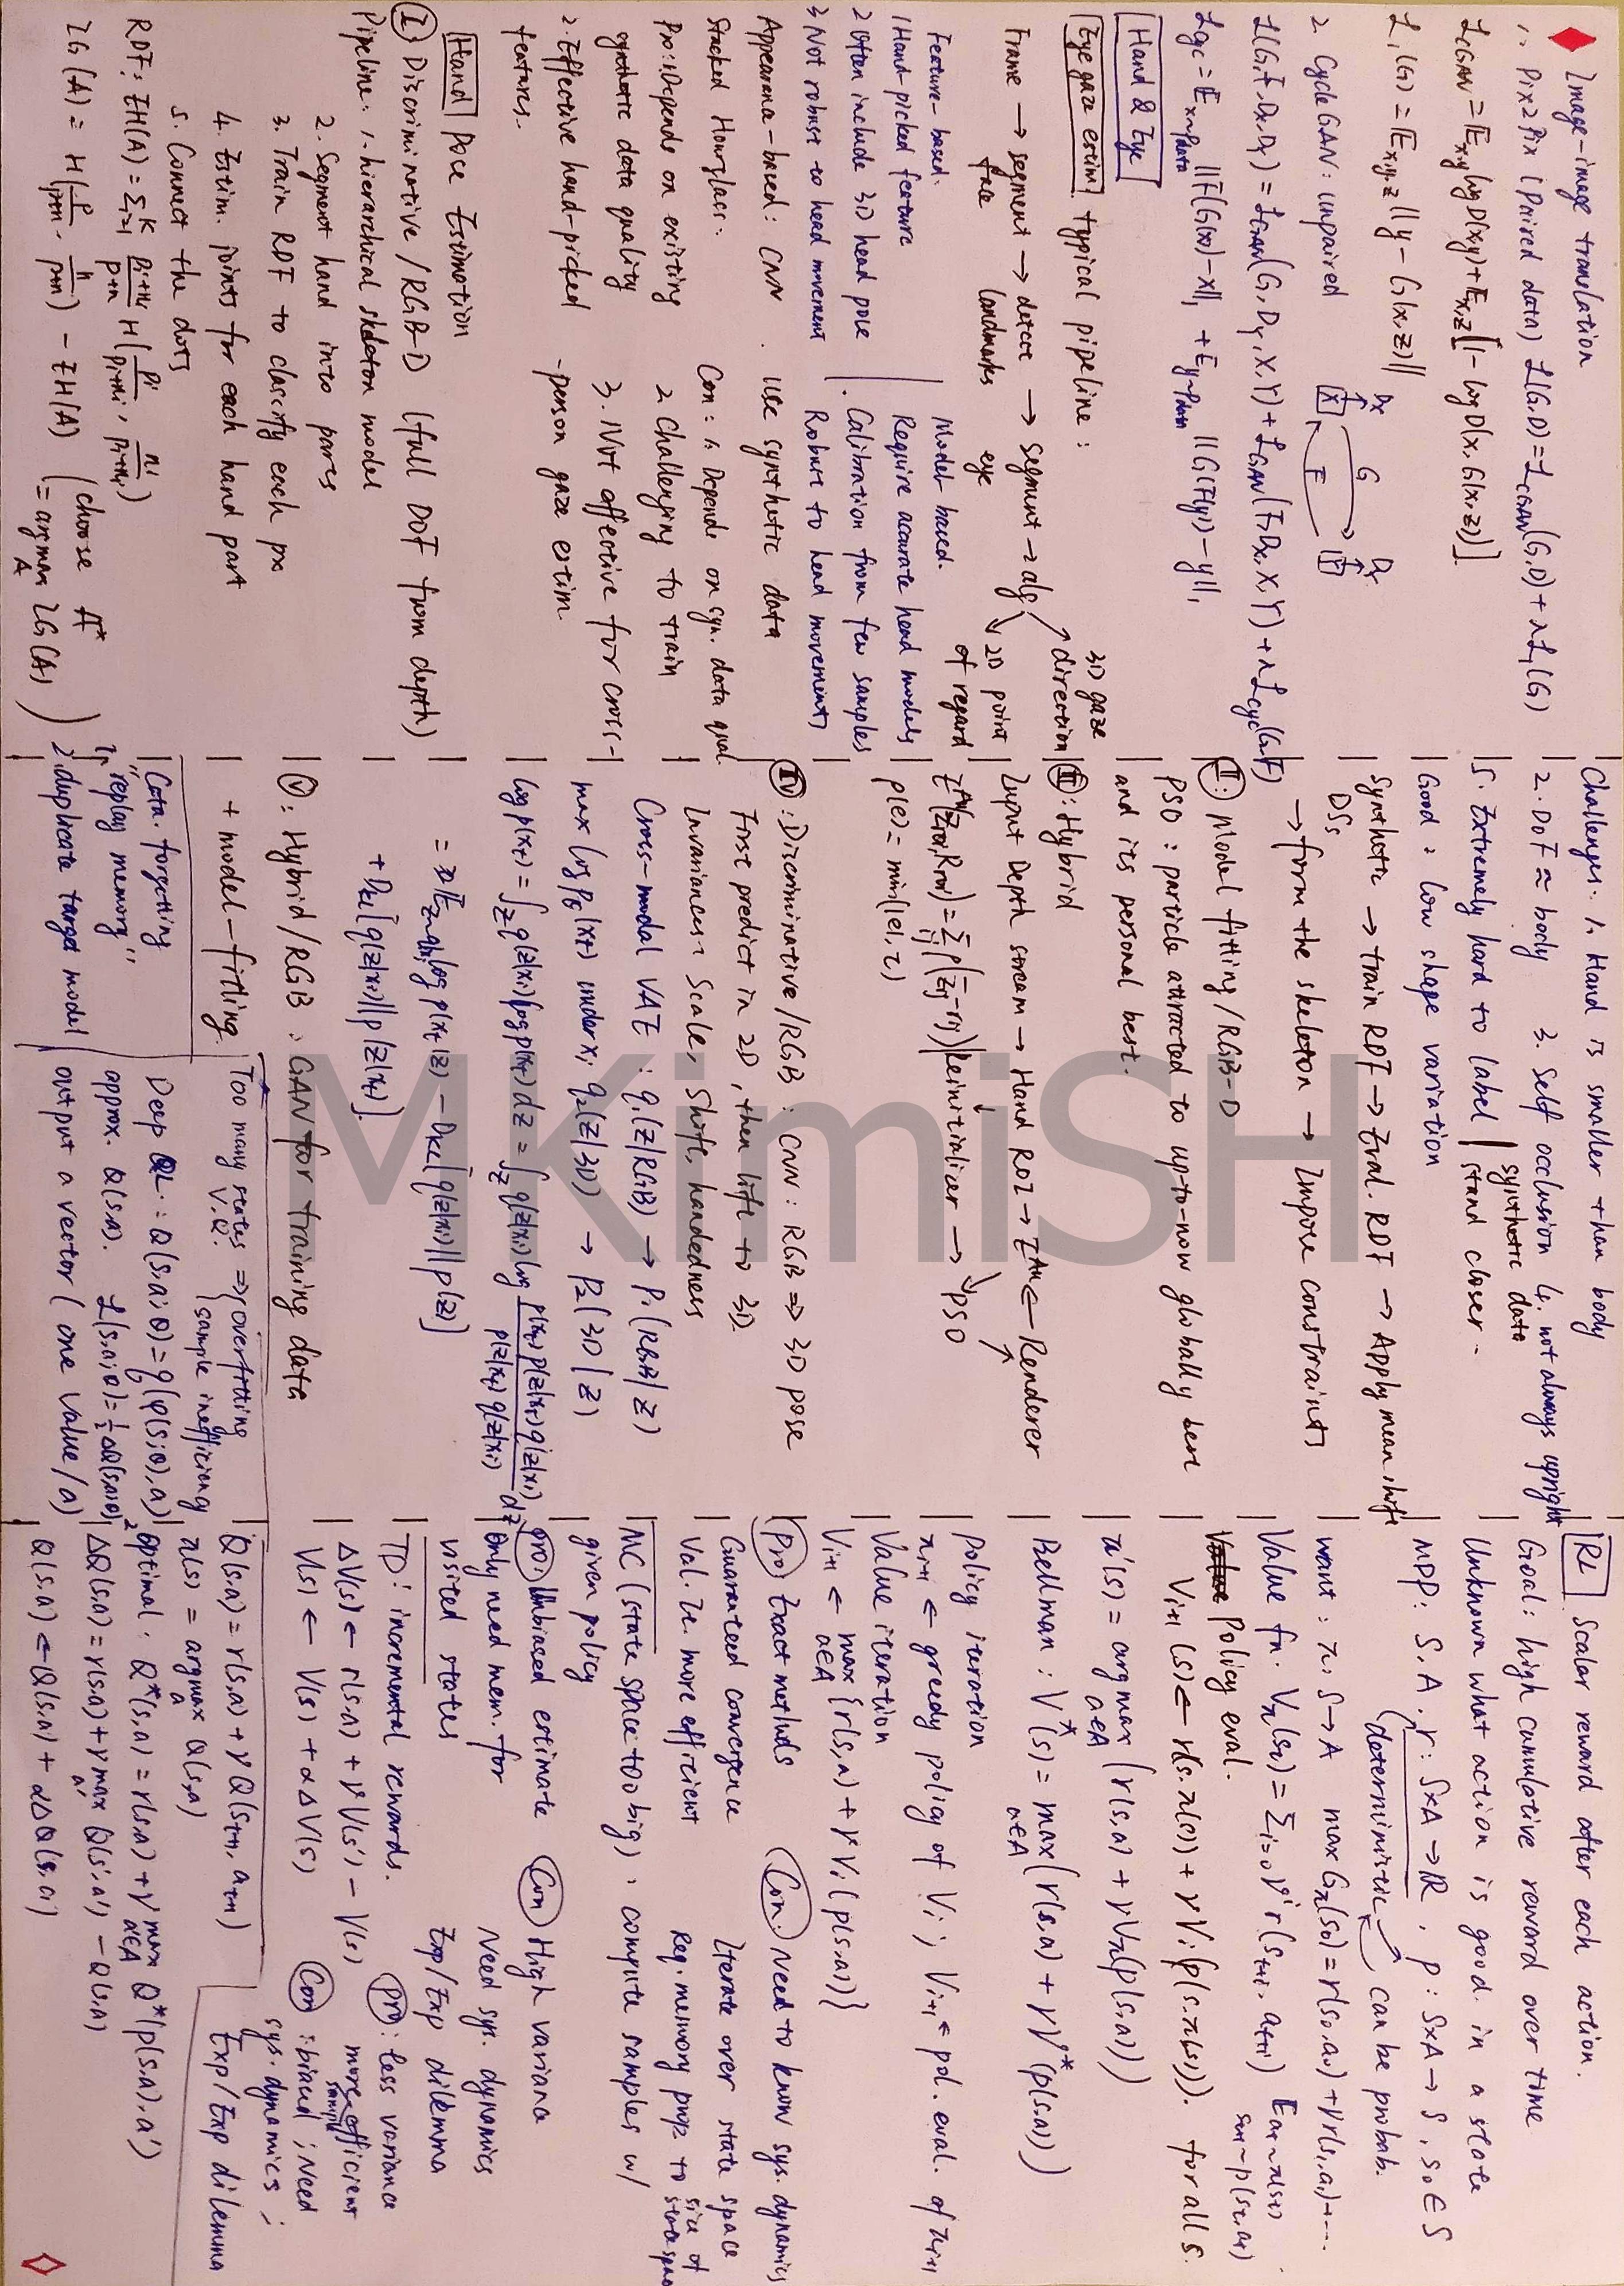 Image-image translation
1. Pix2Pix (Paired data) L(G,D) = L_CGAN(G,D) + λL₁(G)
L_CGAN = E_x,y log D(x,y) + E_x,z[1 - log D(x,G(x,z))]
L₁(G) = E_x,y,z ||y - G(x,z)||
2. CycleGAN: unpaired
Dx G Dy
X F Y
L(G,F,Dx,Dy) = L_GAN(G,Dy,X,Y) + L_GAN(F,Dx,X,Y) + λL_cyc(G,F)
L_cyc = E_x~pdata ||F(G(x)) - x||₁ + E_y~pdata ||G(F(y)) - y||₁
Hand & Eye
Eye gaze estim typical pipeline:
Frame → segment face → detect landmarks → segment eye → alg
3D gaze direction
2D point of regard
Feature-based.
1 Hand-picked feature
2 Often include 3D head pose
3 Not robust to head movement
Model based.
Require accurate head models
Calibration from few samples
Robust to head movements
Appearance-based: CNN. Use synthetic data
Stacked Hourglass.
Pro: 1 Depends on existing synthetic data quality
2. Effective hand-picked features.
Con: 1. Depends on syn. data qual
2 Challenging to train
3. Not effective for cross-person gaze estim.
Hand Pose Estimation
I Discriminative / RGB-D (full DoF from depth)
Pipeline: 1. hierarchical skeleton model
2. Segment hand into parts
3. Train RDF to classify each px
4. Estim. joints for each hand part
5. Connect the dots
RDF: EH(A) = Σ_{i=1}^K (pi+ni)/(p+n) H(pi/(pi+ni), ni/(pi+ni))
IG(A) = H(p/(p+n), n/(p+n)) - EH(A) (choose A* = argmax_A IG(A))
Challenges: 1. Hand is smaller than body
2. DoF ≈ body 3. Self occlusion 4. not always upright
5. Extremely hard to label | synthetic data stand closer.
Good: low shape variation
Synthetic DSs → train RDF → Eval. RDF → Apply mean shift
→ form the skeleton → Impose constraints
II: Model fitting / RGB-D
PSO: particle attracted to up-to-now globally best
and its personal best.
III: Hybrid
Input Depth stream → Hand ROI → E^Au ← Renderer
E^Au(Z_roi, R_roi) = Σ_ij ρ(z_ij - r_ij) | Reinitializer → PSO
ρ(e) = min(|e|, τ)
IV: Discriminative / RGB: CNN: RGB ⇒ 3D pose
First predict in 2D, then lift to 3D.
Invariances: Scale, Shift, handedness
Cross-modal VAE: q₁(z|RGB) → p₁(RGB|z)
max log p_θ(x_t) under x_i q₂(z|3D) → p₂(3D|z)
log p(x_t) = ∫_z q(z|x_i) log p(x_t) dz = ∫_z q(z|x_i) log p(x_t) p(z|x_t) q(z|x_i) / p(z|x_t) q(z|x_i) dz
= E_z~q(z|x_i) log p(x_t|z) - D_KL[q(z|x_i)||p(z)]
+ D_KL[q(z|x_i)||p(z|x_t)].
V: Hybrid/RGB: GAN for training data
+ model-fitting
Cata. forgetting
1. "replay memory"
2. duplicate target model
Too many states ⇒ overfitting
V, Q. sample inefficiency
Deep QL: Q(s,a;θ) = q(φ(s;θ),a)
approx. Q(s,a). L(s,a;θ) = ½ΔQ(s,a;θ)²
output a vector (one value/a)
RL Scalar reward after each action.
Goal: high cumulative reward over time
Unknown what action is good in a state
MDP: S, A, r: S×A→R, p: S×A→S, s₀∈S
(deterministic) can be probab.
want: π: S→A max G_π(s₀) = r(s₀,a₀) + γr(s₁,a₁) + ...
Value fn: V_π(s_t) = Σ_{i≥0} γ^i r(s_{t+i}, a_{t+i})
Policy eval.
V_{i+1}(s) ← r(s,π(s)) + γV_i(p(s,π(s))). for all s.
π'(s) = argmax_{a∈A} (r(s,a) + γV_π(p(s,a)))
Bellman: V*(s) = max_{a∈A} (r(s,a) + γV*(p(s,a)))
Policy iteration
π_{i+1} ← greedy policy of V_i; V_{i+1} ← pol. eval. of π_{i+1}
Value iteration
V_{i+1} ← max_{a∈A} {r(s,a) + γV_i(p(s,a))}
Pro Exact methods
Guaranteed convergence
Val. It. more efficient
Con. Need to know sys. dynamics
Iterate over state space
Req. memory prop to size of state space
MC (state space too big), compute samples w/
given policy
Pro: Unbiased estimate
Only need mem. for visited states
Con High variance
Need sys. dynamics
Exp/Exp dilemma
TD: incremental rewards.
ΔV(s) ← r(s,a) + γV(s') - V(s)
V(s) ← V(s) + αΔV(s)
Pro: less variance
more sample efficient
Con: biased; Need sys. dynamics;
Exp/Exp dilemma
Q(s,a) = r(s,a) + γQ(s_{t+1}, a_{t+1})
π(s) = argmax_a Q(s,a)
Optimal: Q*(s,a) = r(s,a) + γ max_{a'∈A} Q*(p(s,a),a')
ΔQ(s,a) = r(s,a) + γ max_{a'} Q(s',a') - Q(s,a)
Q(s,a) ← Q(s,a) + αΔQ(s,a)
MKimiSH